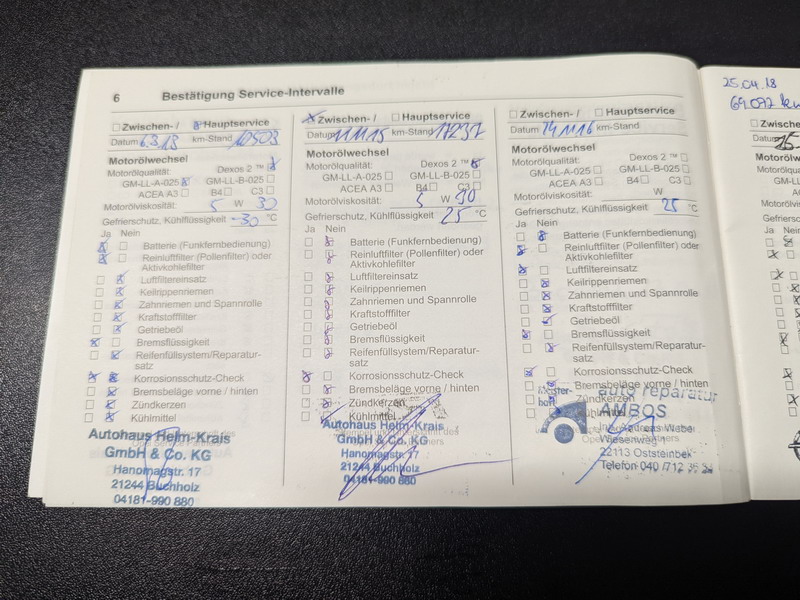 6 Bestätigung Service-Intervalle
Zwischen- / Hauptservice
Datum km-Stand
Motorölwechsel
Motorölqualität: Dexos 2 ™
GM-LL-A-025 GM-LL-B-025
ACEA A3 B4 C3
Motorölviskosität: 5 W 30
Gefrierschutz, Kühlflüssigkeit -30 °C
Ja Nein
Batterie (Funkfernbedienung)
Reinluftfilter (Pollenfilter) oder
Aktivkohlefilter
Luftfiltereinsatz
Keilrippenriemen
Zahnriemen und Spannrolle
Kraftstofffilter
Getriebeöl
Bremsflüssigkeit
Reifenfüllsystem/Reparatur-
satz
Korrosionsschutz-Check
Bremsbeläge vorne / hinten
Zündkerzen
Kühlmittel
Autohaus Helm-Krais
GmbH & Co. KG
Hanomagstr. 17
21244 Buchholz
04181-990 880
Zwischen- / Hauptservice
Datum 11.11.15 km-Stand 17237
Motorölwechsel
Motorölqualität: Dexos 2 ™
GM-LL-A-025 GM-LL-B-025
ACEA A3 B4 C3
Motorölviskosität: 5 W 30
Gefrierschutz, Kühlflüssigkeit 25 °C
Ja Nein
Batterie (Funkfernbedienung)
Reinluftfilter (Pollenfilter) oder
Aktivkohlefilter
Luftfiltereinsatz
Keilrippenriemen
Zahnriemen und Spannrolle
Kraftstofffilter
Getriebeöl
Bremsflüssigkeit
Reifenfüllsystem/Reparatur-
satz
Korrosionsschutz-Check
Bremsbeläge vorne / hinten
Zündkerzen
Kühlmittel
Autohaus Helm-Krais
GmbH & Co. KG
Hanomagstr. 17
21244 Buchholz
04181-990 880
Zwischen- / Hauptservice
Datum km-Stand
Motorölwechsel
Motorölqualität: Dexos 2 ™
GM-LL-A-025 GM-LL-B-025
ACEA A3 B4 C3
Motorölviskosität: W
Gefrierschutz, Kühlflüssigkeit 25 °C
Ja Nein
Batterie (Funkfernbedienung)
Reinluftfilter (Pollenfilter) oder
Aktivkohlefilter
Luftfiltereinsatz
Keilrippenriemen
Zahnriemen und Spannrolle
Kraftstofffilter
Getriebeöl
Bremsflüssigkeit
Reifenfüllsystem/Reparatur-
satz
Korrosionsschutz-Check
Bremsbeläge vorne / hinten
Zündkerzen
Kühlmittel
auto reparatur
AMBOS
Wiesenweg 1
22113 Oststeinbek
Telefon 040 /712
25.04.18
69.092 km
Datum
Ja